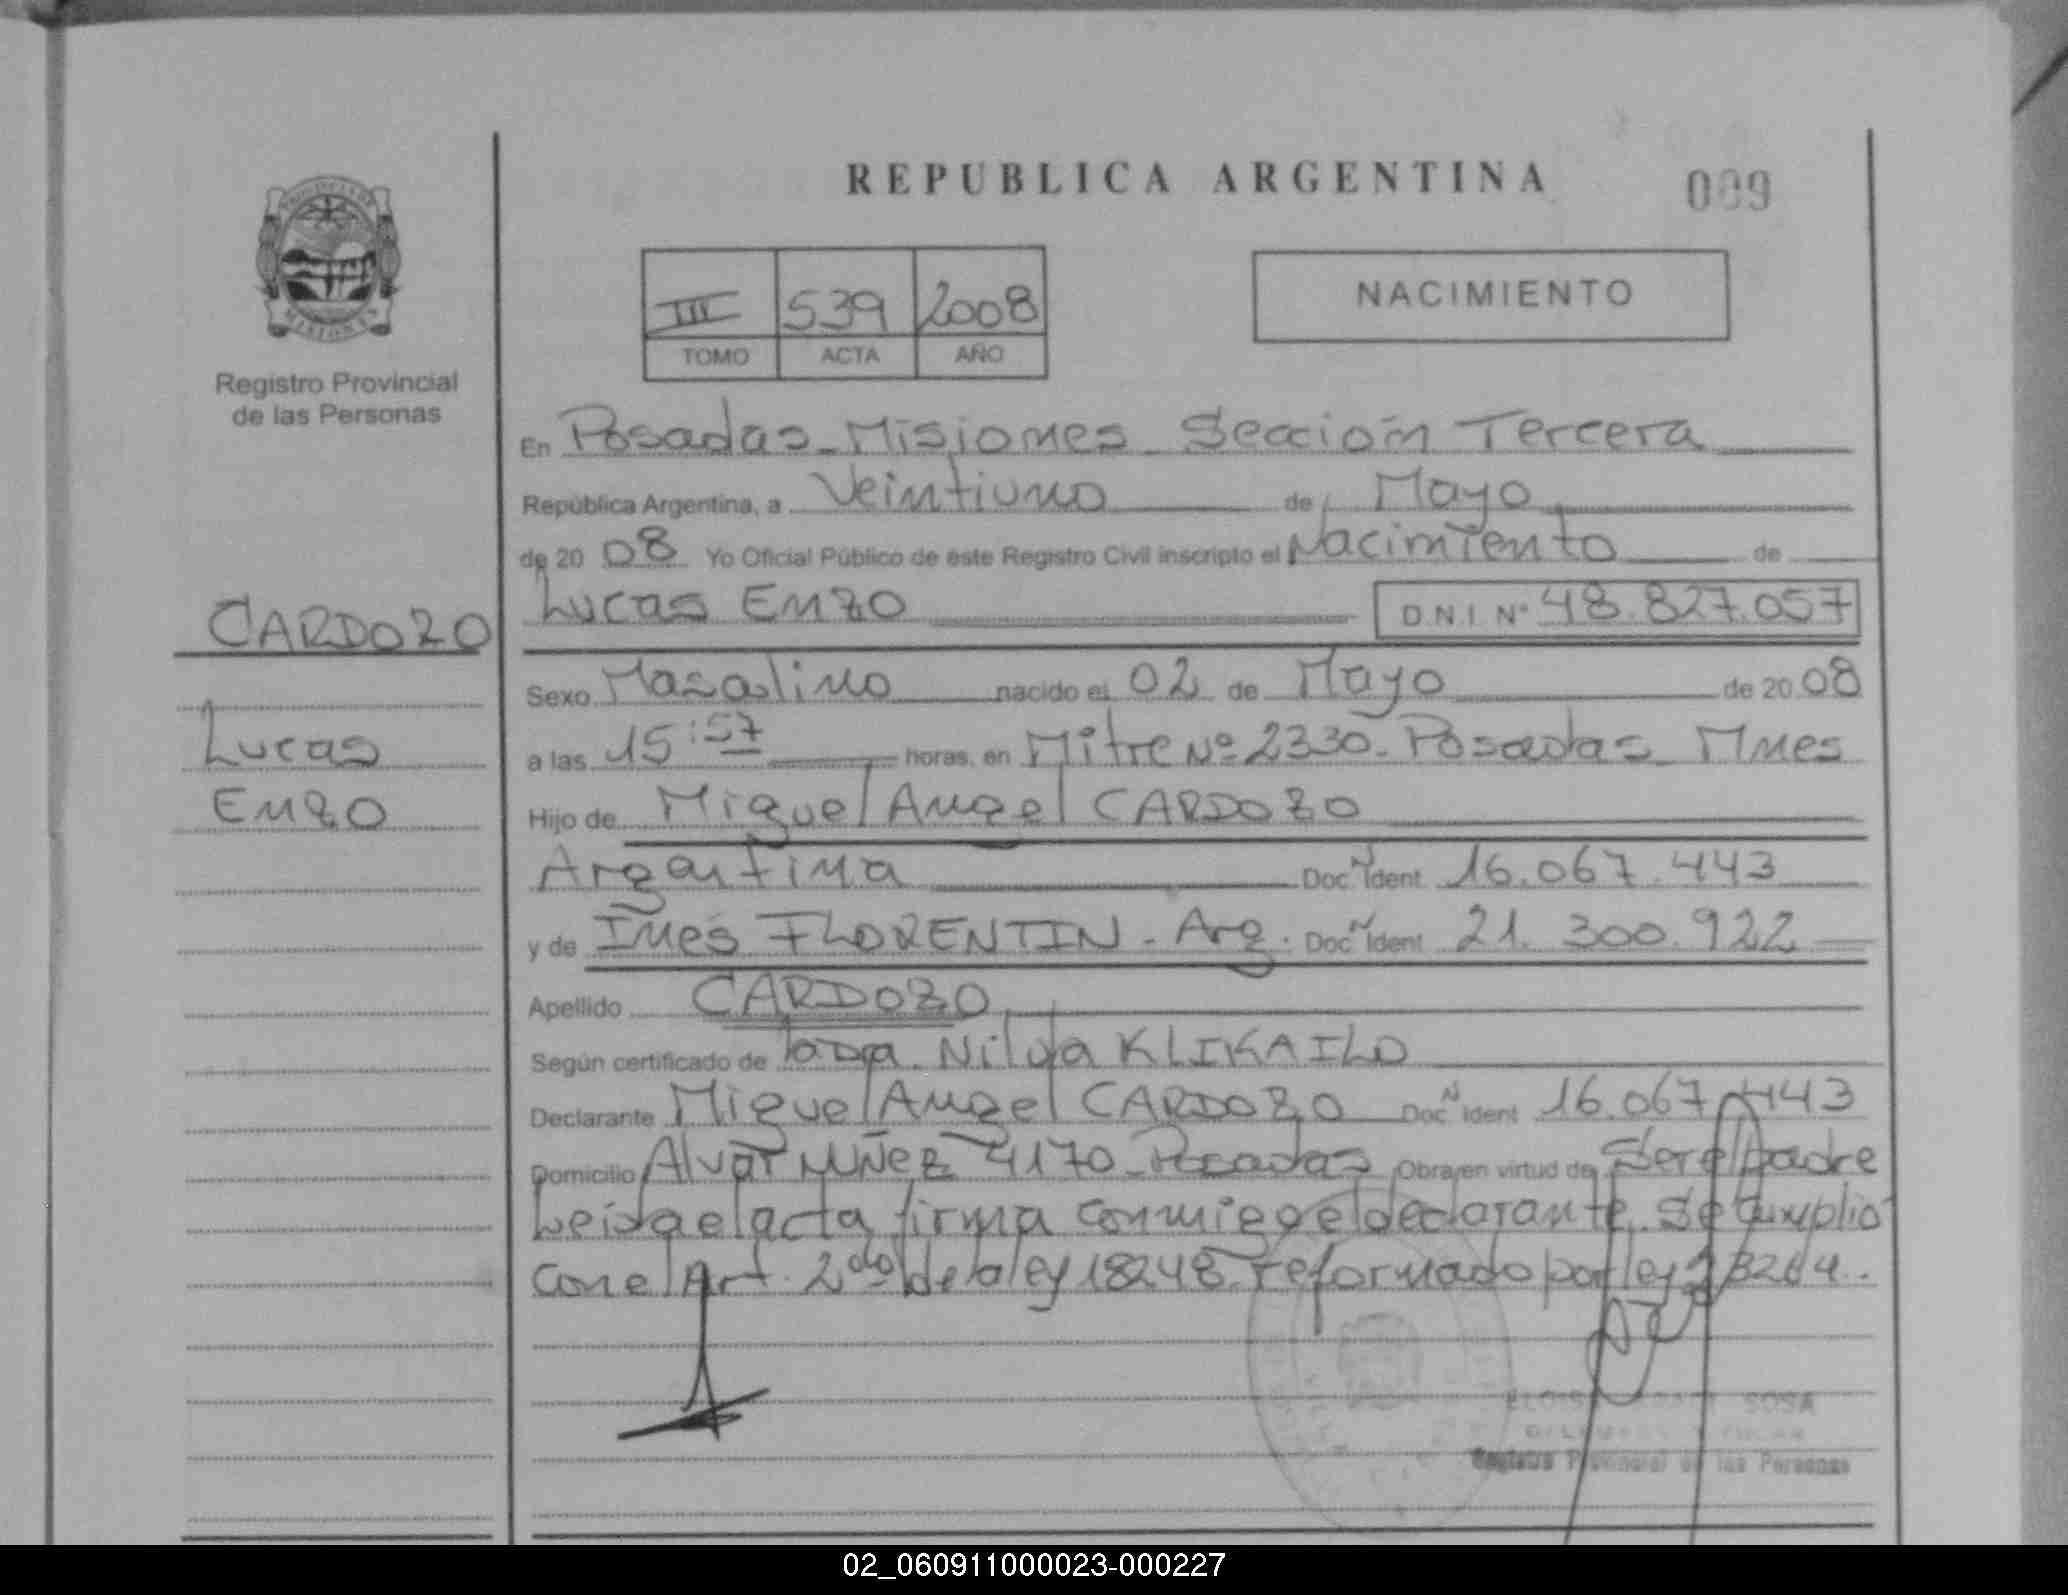 REPUBLICA ARGENTINA
009
PROVINCIA DE
MISIONES
Registro Provincial
de las Personas
III 539 2008
TOMO ACTA AÑO
NACIMIENTO
En Posadas - Misiones - Sección Tercera
República Argentina, a Veintiuno de Mayo
de 20 08 Yo Oficial Público de este Registro Civil inscripto el Nacimiento de
CARDOZO
Lucas Enzo D.N.I. Nº 48.827.057
Sexo Masculino nacido el 02 de Mayo de 20 08
Lucas
a las 15:57 horas, en Mitre Nº 2330 - Posadas - Mnes
Enzo
Hijo de Miguel Angel CARDOZO
Argentina Doc N Ident 16.067.443
y de Inés FLORENTIN - Arg. Doc N Ident 21.300.922
Apellido CARDOZO
Según certificado de Nilda KLIKAILO
Declarante Miguel Angel CARDOZO Doc N Ident 16.067.443
Domicilio Alvar Nuñez 4170 - Posadas Obra en virtud de Ser el padre
Leida el acta firma conmigo el declarante. Se cumplio
con el Art. 2do de la ley 18248 reformado por ley 23264.
SOSA
Registro Provincial de las Personas
02_060911000023-000227